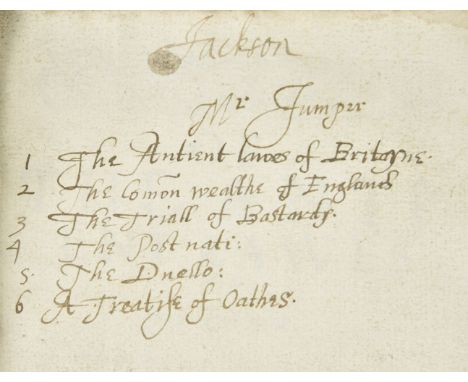 Jackson
Mr Jumper
1 The Antient lawes of Britayne.
2 The Comon wealthe of England
3 The Triall of Bastards.
4 The Post nati:
5. The Duello:
6 A Treatise of Oathes.